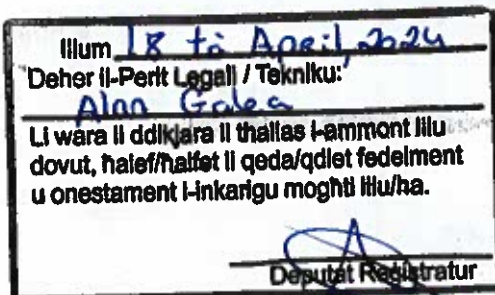 Illum 18 ta' April, 2024
Deher il-Perit Legali / Tekniku:
Alan Galea
Li wara li ddikjara li tħallas l-ammont lilu
dovut, ħalef/ħalfet li qeda/qdiet fedelment
u onestament l-inkarigu mogħti lilu/ha.
Deputat Reġistratur